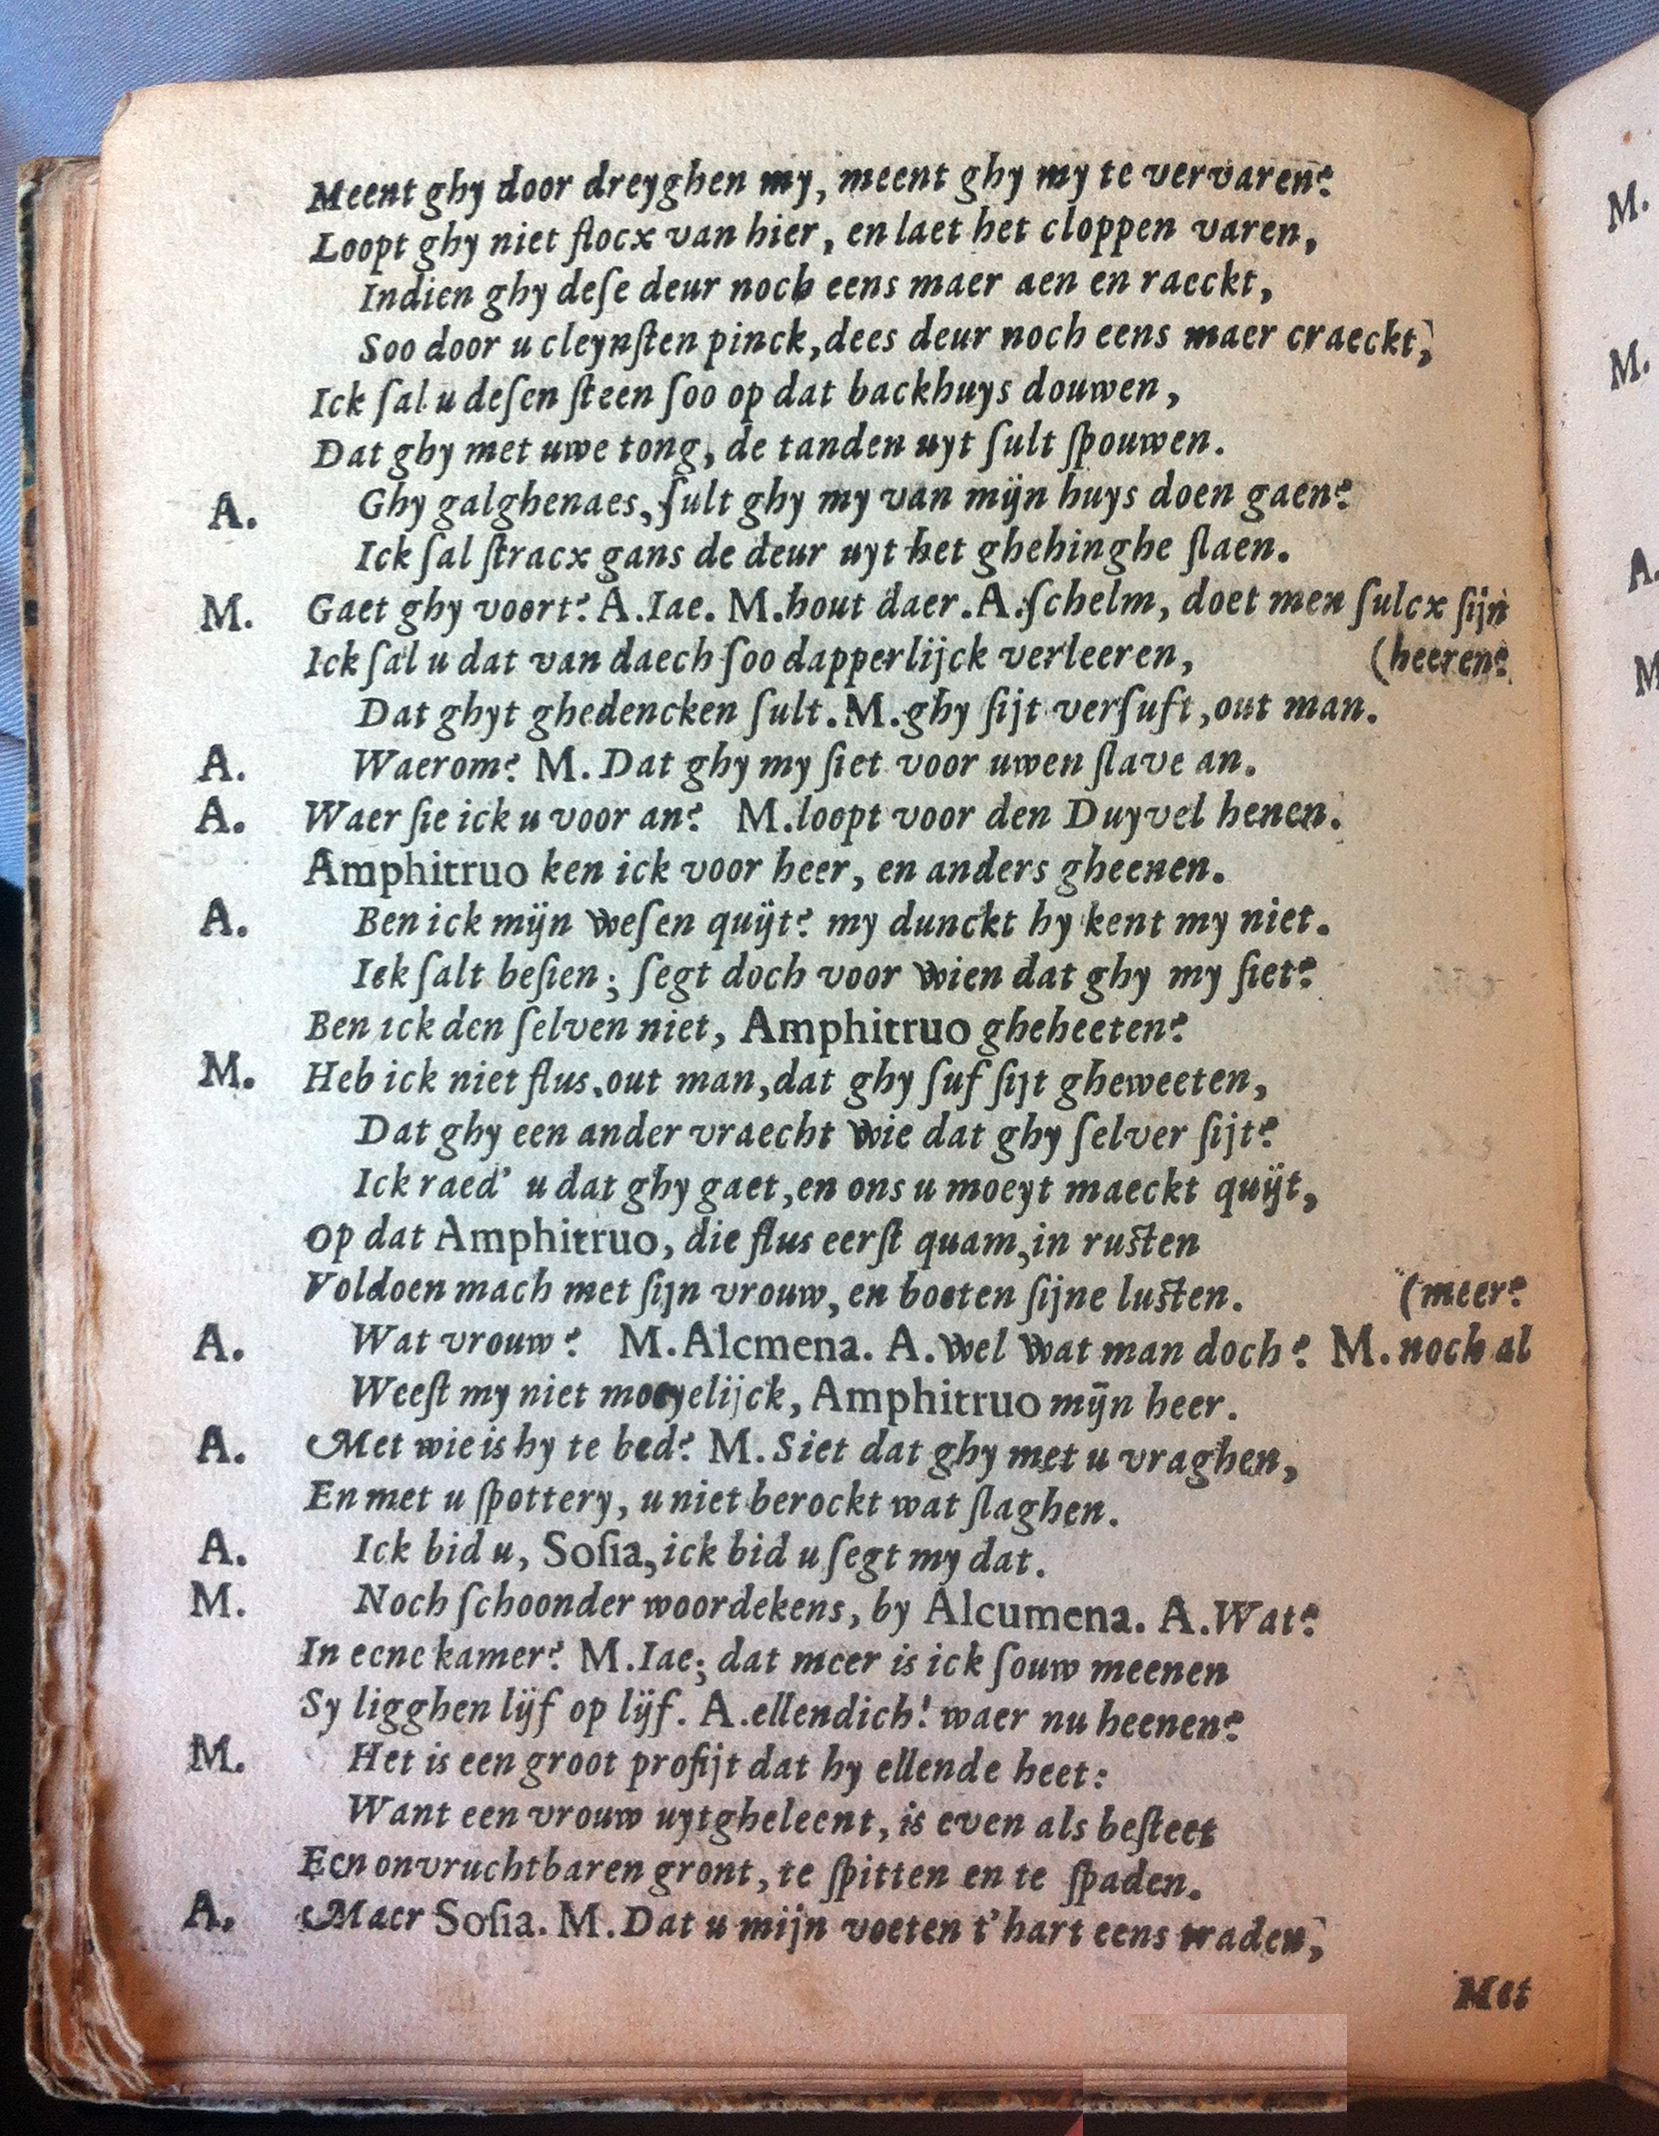 Meent ghy door dreyghen my, meent ghy my te vervaren?
Loopt ghy niet flocx van hier, en laet het cloppen varen,
Indien ghy deſe deur noch eens maer aen en raeckt,
Soo door u cleynſten pinck, dees deur noch eens maer craeckt,
Ick ſal u deſen ſteen ſoo op dat backhuys douwen,
Dat ghy met uwe tong, de tanden uyt ſult ſpouwen.
A. Ghy galghenaes, ſult ghy my van mijn huys doen gaen?
Ick ſal ſtracx gans de deur uyt het ghehinghe ſlaen.
M. Gaet ghy voort? A. Iae. M. hout daer. A. ſchelm, doet men ſulcx ſijn
Ick ſal u dat van daech ſoo dapperlijck verleeren, (heeren?
Dat ghyt ghedencken ſult. M. ghy ſijt verſuft, out man.
A. Waerom? M. Dat ghy my ſiet voor uwen ſlave an.
A. Waer ſie ick u voor an? M. loopt voor den Duyvel henen.
Amphitruo ken ick voor heer, en anders gheenen.
A. Ben ick mijn weſen quijt? my dunckt hy kent my niet.
Ick ſalt beſien; ſegt doch voor wien dat ghy my ſiet?
Ben ick den ſelven niet, Amphitruo gheheeten?
M. Heb ick niet flus, out man, dat ghy ſuf ſijt gheweeten,
Dat ghy een ander vraecht wie dat ghy ſelver ſijt?
Ick raed' u dat ghy gaet, en ons u moeyt maeckt quijt,
Op dat Amphitruo, die flus eerſt quam, in ruſten
Voldoen mach met ſijn vrouw, en boeten ſijne luſten. (meer?
A. Wat vrouw? M. Alcmena. A. wel wat man doch? M. noch al
Weeſt my niet moeyelijck, Amphitruo mijn heer.
A. Met wie is hy te bed? M. Siet dat ghy met u vraghen,
En met u ſpottery, u niet berockt wat ſlaghen.
A. Ick bid u, Soſia, ick bid u ſegt my dat.
M. Noch ſchoonder woordekens, by Alcumena. A. Wat?
In eene kamer? M. Iae; dat meer is ick ſouw meenen
Sy ligghen lijf op lijf. A. ellendich! waer nu heenen?
M. Het is een groot profijt dat hy ellende heet:
Want een vrouw uytgheleent, is even als beſteet
Een onvruchtbaren gront, te ſpitten en te ſpaden.
A. Maer Soſia. M. Dat u mijn voeten t'hart eens traden,
Met
M.
M.
A.
M